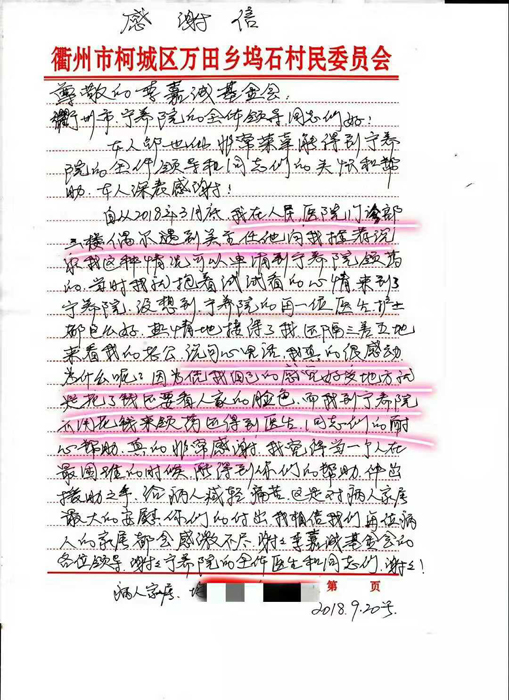 感谢信
衢州市柯城区万田乡坞石村民委员会
尊敬的李嘉诚基金会,
衢州市宁养院的全体领导同志们好!
本人 非常荣幸能得到宁养
院的全体领导和同志们的关怀和帮
助.本人深表感谢!
自从2018年3月底,我在人民医院门诊部
三楼偶尔遇到吴主任他向我推荐说
你我这种情况可以申请到宁养院领药
的,当时我就抱着试试看的心情来到了
宁养院,没想到宁养院的每一位医生护士
都这么好,热情地接待了我还隔三差五地
来看我的老公,说句心里话,我真的很感动
为什么呢?因为使我自己的感觉好多地方就
是花了钱还要看人家的脸色.而我到宁养院
不用花钱来领药还得到医生,同志们的耐
心帮助.真的非常感谢,我觉得当一个人在
最困难的时候,能得到你们的帮助,伸出
援助之手,给病人减轻痛苦,这是对病人家属
最大的安慰你们的付出,我相信我们每位病
人的家属都会感激不尽,谢谢李嘉诚基金会的
各位领导,谢谢宁养院的全体医生和同志们.谢谢!
第 页
病人家属:
2018.9.20号